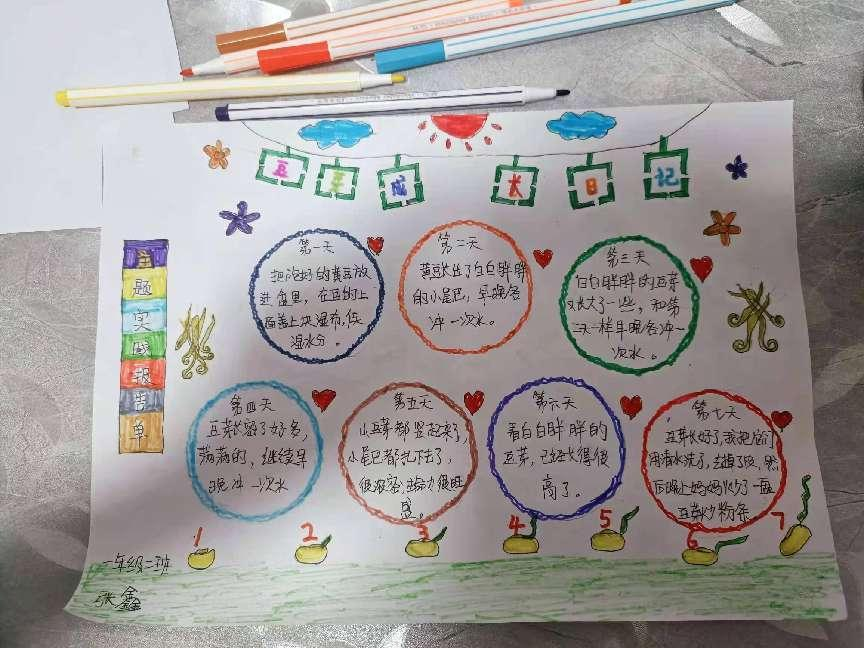 豆芽成长日记
主题实践报告单
第一天
把泡好的黄豆放
进盆里，在豆的上
面盖上块湿布，保
湿水分。
第二天
黄豆长出了白白胖胖
的小尾巴，早晚各
冲一次水。
第三天
白白胖胖的豆芽
又长大了一些，和第
二天一样早晚各冲一
次水。
第四天
豆芽长密了好多，
满满的，继续早
晚冲一次水
第五天
小豆芽都竖起来了，
小尾巴都扎下去了，
很浓密，生命力很旺
盛。
第六天
看白白胖胖的
豆芽，已经长得很
高了。
第七天
豆芽长好了，我把它们
用清水洗了，去掉了皮，然
后晚上妈妈炒了一盘
豆芽炒粉条
1 2 3 4 5 6 7
一年级二班
张鑫